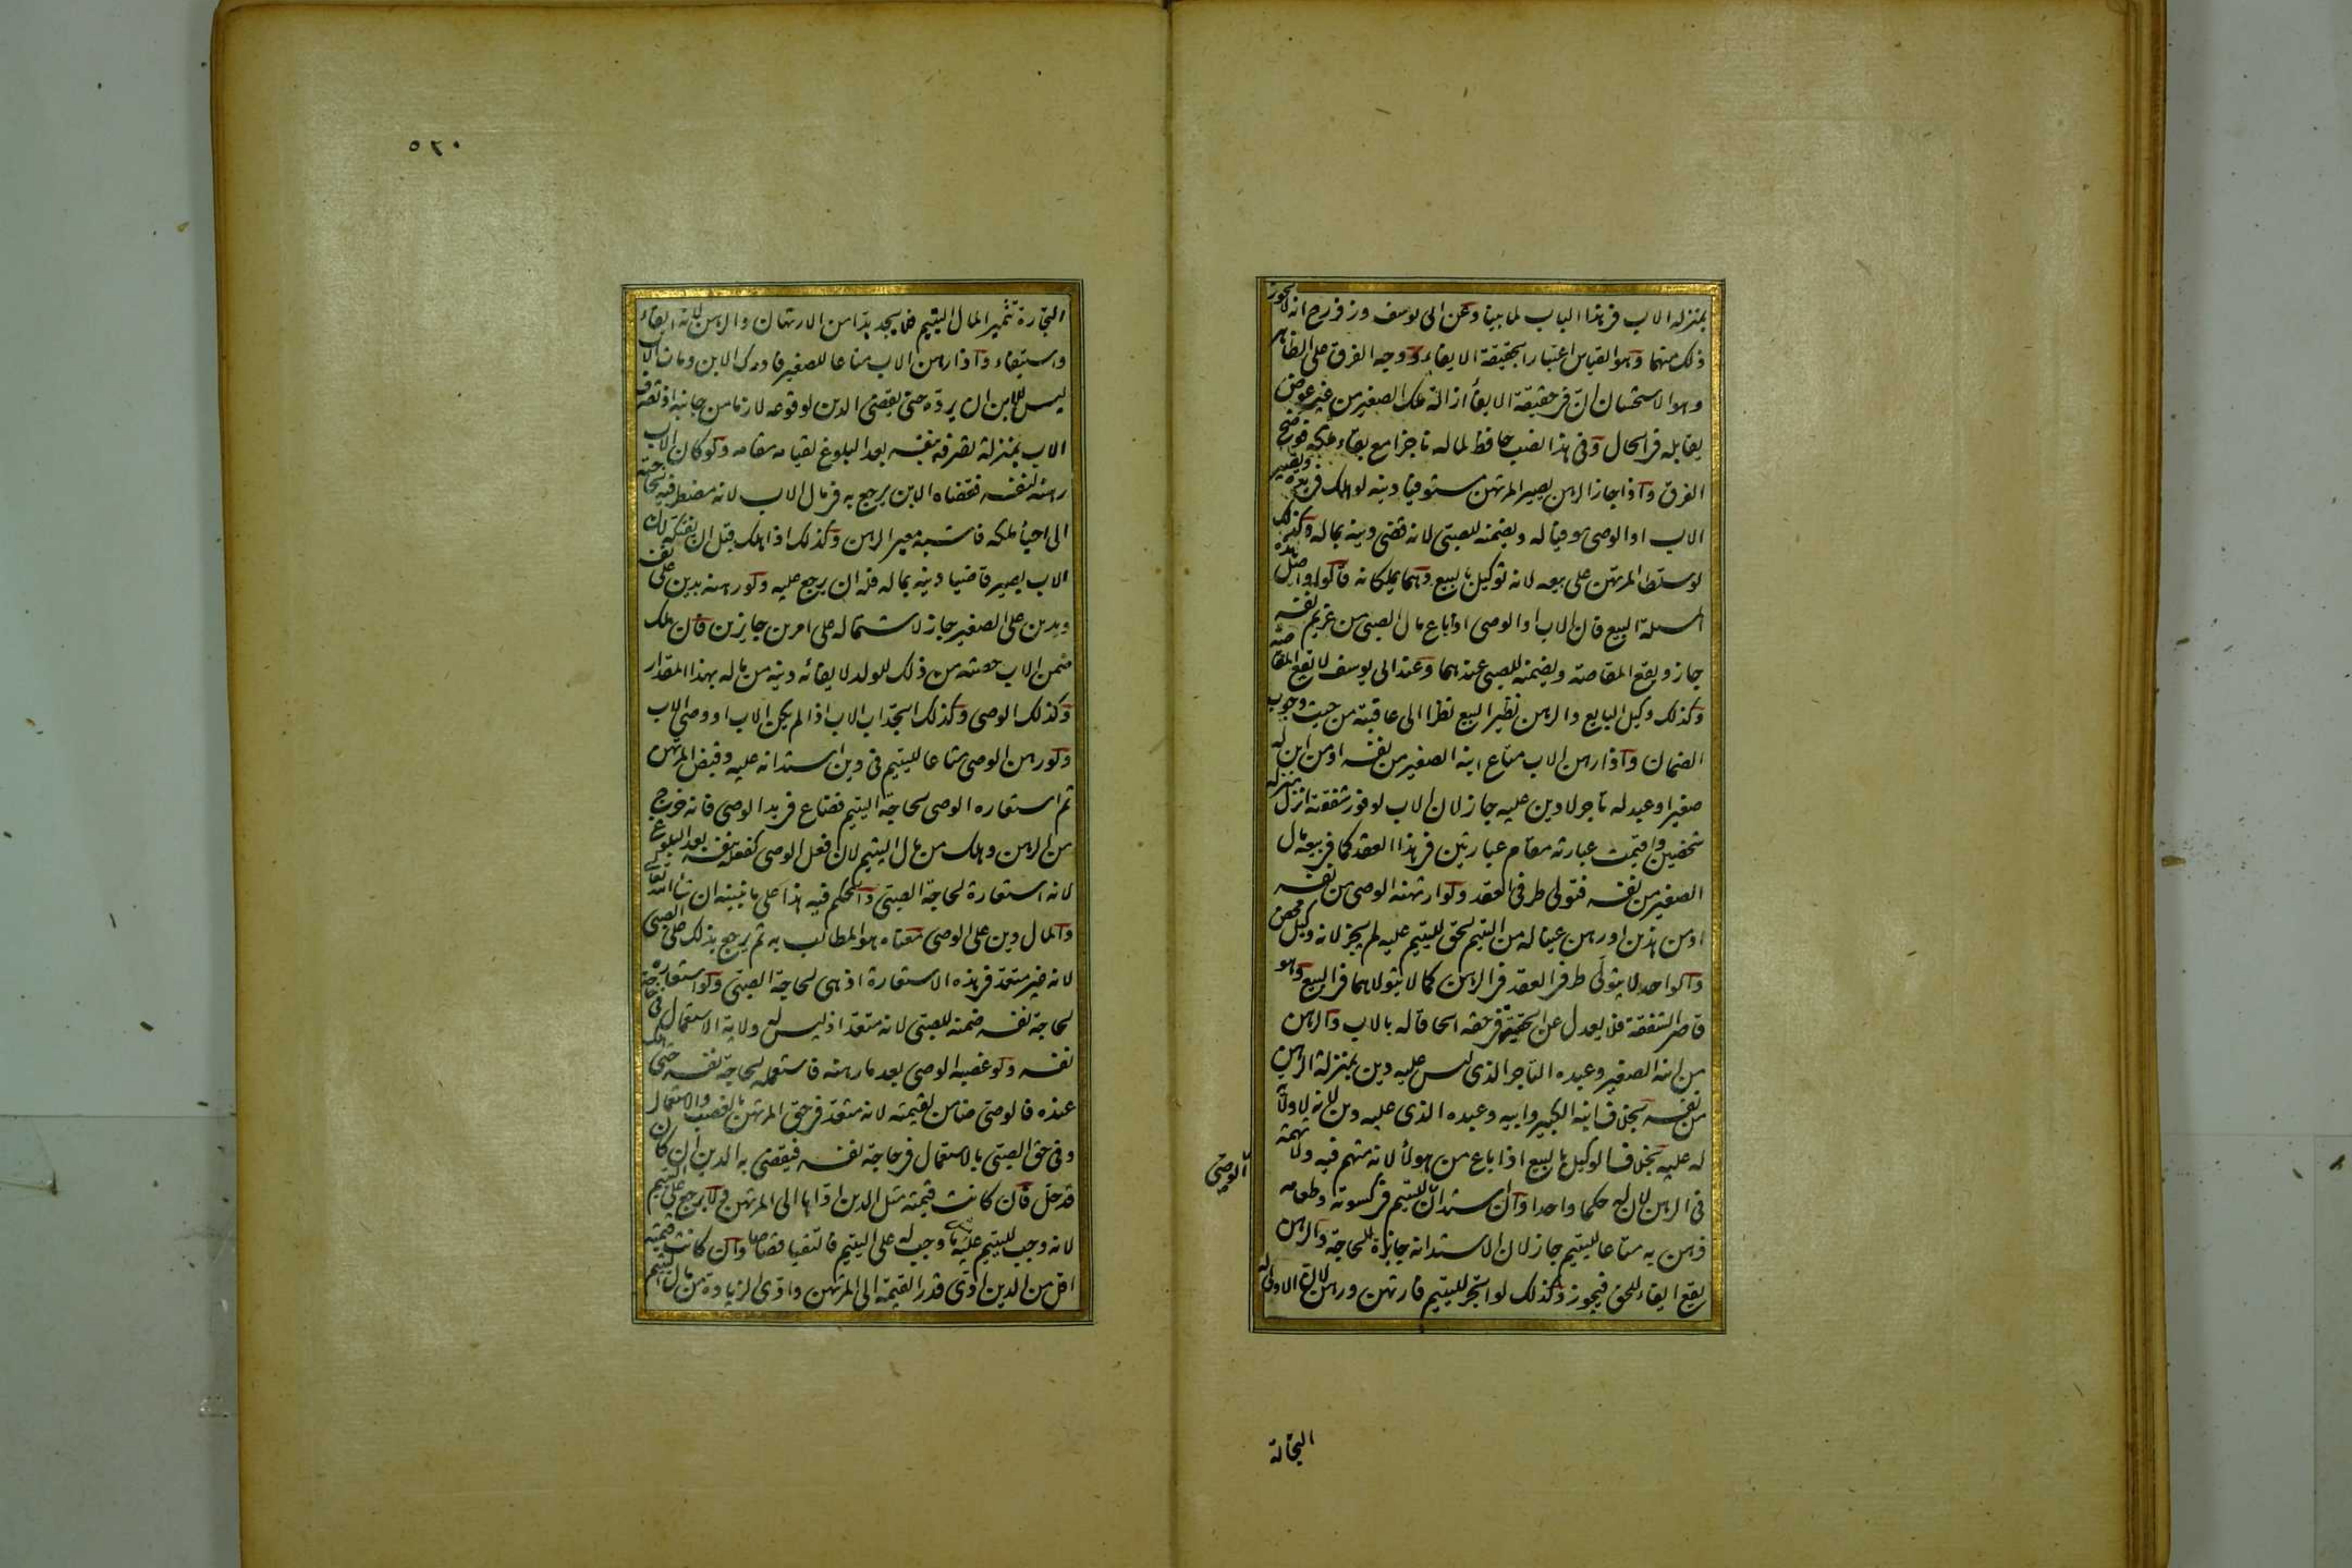 بمنزله الاب فى هذا الباب لما بينا وعن ابى يوسف وزفر رح انه لا يجوز
ذلك منهما وهو القياس اعتبارا بحقيقة الايفاء ووجه الفرق على الظاهر
وهو الاستحسان ان فى حقيقة الايفاء ازالة ملك الصغير من غير عوض
يقابله فى الحال وفى هذا نصب حافظ لماله ناجزا مع بقاء ملكه فوضح
الفرق واذا جاز الرهن يصير المرتهن مستوفيا دينه لو هلك فى يده ويصير
الاب او الوصى موفيا له ويضمنه للصبى لانه قضى دينه بماله وكذلك
لو سلطا المرتهن على بيعه لانه توكيل بالبيع وهما يملكانه قالوا اصل هذه
المسئلة البيع فان الاب او الوصى اذا باع مال الصبى من غريم نفسه
جاز ويقع المقاصة ويضمنه للصبى عندهما وعند ابى يوسف لا تقع المقاصة
وكذلك وكيل البايع والرهن نظير البيع نظرا الى عاقبته من حيث وجوب
الضمان واذا رهن الاب متاع ابنه الصغير من نفسه او من ابن له
صغير او عبد له تاجر لا دين عليه جاز لان الاب لوفور شفقته انزل بمنزلة
شخصين واقيمت عبارته مقام عبارتين فى هذا العقد كما فى بيعه مال
الصغير من نفسه فتولى طرفى العقد ولو ارتهنه الوصى من نفسه
او من هذين او رهن عينا له من اليتيم لحق لليتيم عليه لم يجز لانه وكيل محض
والواحد لا يتولى طرفى العقد فى الرهن كما لا يتولاهما فى البيع وهو
قاصر الشفقة فلا يعدل عن الحقيقة فى حقه الحاقا له بالاب والرهن
من ابنه الصغير وعبده التاجر الذى ليس عليه دين بمنزلة الرهن
من نفسه بخلاف ابنه الكبير وابيه وعبده الذى عليه دين لانه لا ولاية
له عليه بخلاف الوكيل بالبيع اذا باع من هولأ لانه متهم فيه ولا تهمة
فى الرهن لان له حكما واحدا وان استدان لليتيم فى كسوته وطعامه
الوصى
فرهن به متاعا لليتيم جاز لان الاستدانه جايزة للحاجة والرهن
يقع ايفاء للحق فيجوز وكذلك لو اتجر لليتيم فارتهن ورهن لان الاولى له
التجارة
٥٢٠
التجارة تثميرا لمال اليتيم فلا يجد بدا من الارتهان والرهن لانه ايفاء
واستيفاء واذا رهن الاب متاعا للصغير فادرك الابن ومات الاب
ليس للابن ان يرده حتى يقضى الدين لوقوعه لازما من جانبه اذ تصرف
الاب بمنزلة تصرفه بنفسه بعد البلوغ لقيامه مقامه ولو كان الاب
رهنه لنفسه فقضاه الابن يرجع به فى مال الاب لانه مضطر فيه لحاجته
الى احياء ملكه فاشبه معير الرهن وكذلك اذا هلك قبل ان يفتكه لان
الاب يصير قاضيا دينه بماله فله ان يرجع عليه ولو رهنه بدين على نفسه
وبدين على الصغير جاز لاشتماله على امرين جايزين فان هلك
ضمن الاب حصته من ذلك للولد لايفائه دينه من ماله بهذا المقدار
وكذلك الوصى وكذلك الجد اب الاب اذا لم يكن الاب او وصى الاب
ولو رهن الوصى متاعا لليتيم فى دين استدانه عليه وقبض المرتهن
ثم استعاره الوصى لحاجة اليتيم فضاع فى يد الوصى فانه خرج
من الرهن وهلك من مال اليتيم لان فعل الوصى كفعله بنفسه بعد البلوغ
لانه استعارة لحاجة الصبى والحكم فيه هذا على ما نبينه ان شاء الله تعالى
والمال دين على الوصى معناه هو المطالب به ثم يرجع بذلك على الصبى
لانه غير متعد فى هذه الاستعارة اذ هى لحاجة الصبى ولو استعاره
لحاجة نفسه ضمنه للصبى لانه متعد اذ ليس له ولاية الاستعمال فى حاجة
نفسه ولو غصبه الوصى بعد ما رهنه فاستعمله لحاجة نفسه حتى هلك
عنده فالوصى ضامن لقيمته لانه متعد فى حق المرتهن بالغصب والاستعمال
وفى حق الصبى بالاستعمال فى حاجة نفسه فيقضى به الدين ان كان
قد حل فان كانت قيمته مثل الدين اداها الى المرتهن ولا يرجع على اليتيم
لانه وجب لليتيم عليه ما وجب له على اليتيم فالتقيا قصاصا وان كانت قيمته
اقل من الدين ادى قدر القيمة الى المرتهن وادى الزيادة من مال اليتيم